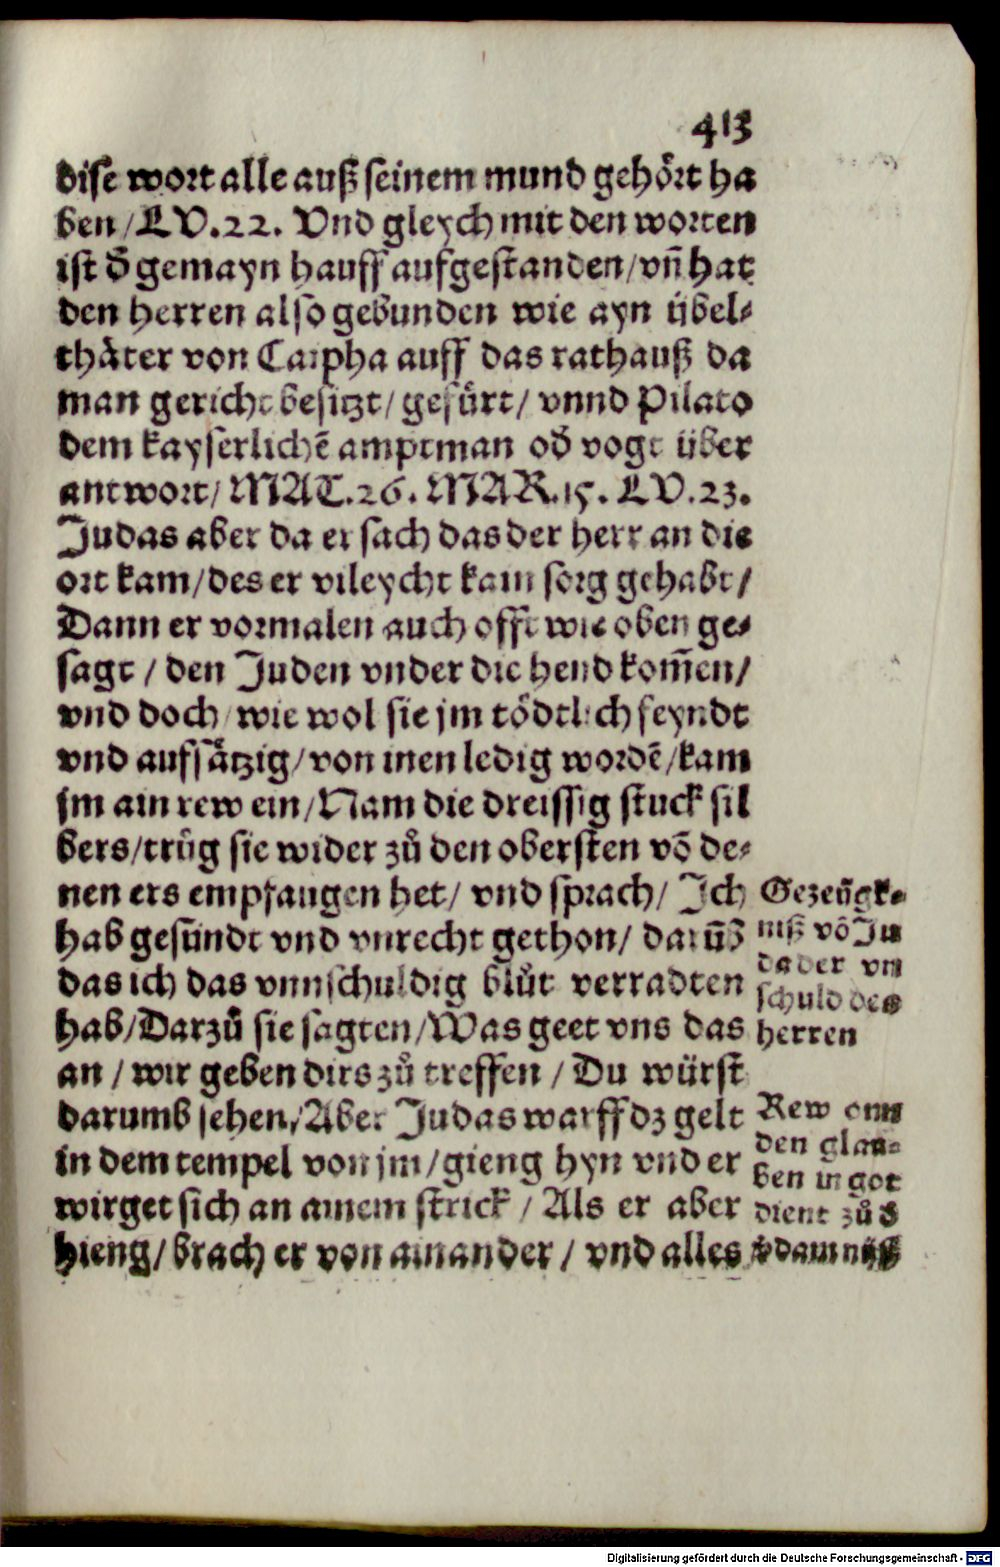 413
dise wort alle auß seinem mund gehört ha
ben / LV.22. Vnd gleych mit den worten
ist d̄ gemayn hauff aufgestanden / vn̄ hat
den herren also gebunden wie ayn übel-
thäter von Caipha auff das rathauß da
man gericht besitzt / gefürt / vnnd Pilato
dem kayserlichē amptman od̄ vogt über
antwort / MAT.26. MAR.15. LV.23.
Judas aber da er sach das der herr an die
ort kam / des er vileycht kain sorg gehabt /
Dann er vormalen auch offt wie oben ge-
sagt / den Juden vnder die hend kom̄en /
vnd doch / wie wol sie jm tödtlich feyndt
vnd aufsätzig / von inen ledig wordē / kam
jm ain rew ein / Nam die dreissig stuck sil
bers / trůg sie wider zů den obersten vō de-
nen ers empfangen het / vnd sprach / Ich
hab gesündt vnd vnrecht gethon / darūb
das ich das vnnschuldig blůt verradten
hab / Darzů sie sagten / Was geet vns das
an / wir geben dirs zů treffen / Du würst
darumb sehen / Aber Judas warff dz gelt
in dem tempel von jm / gieng hyn vnd er
wirget sich an ainem strick / Als er aber
hieng / brach er von ainander / vnd alles
Gezeügk-
niß vō Ju
da der vn
schuld des
herren
Rew onn
den glau-
ben in got
dient zů d̄
v̄damnüß
Digitalisierung gefördert durch die Deutsche Forschungsgemeinschaft - DFG